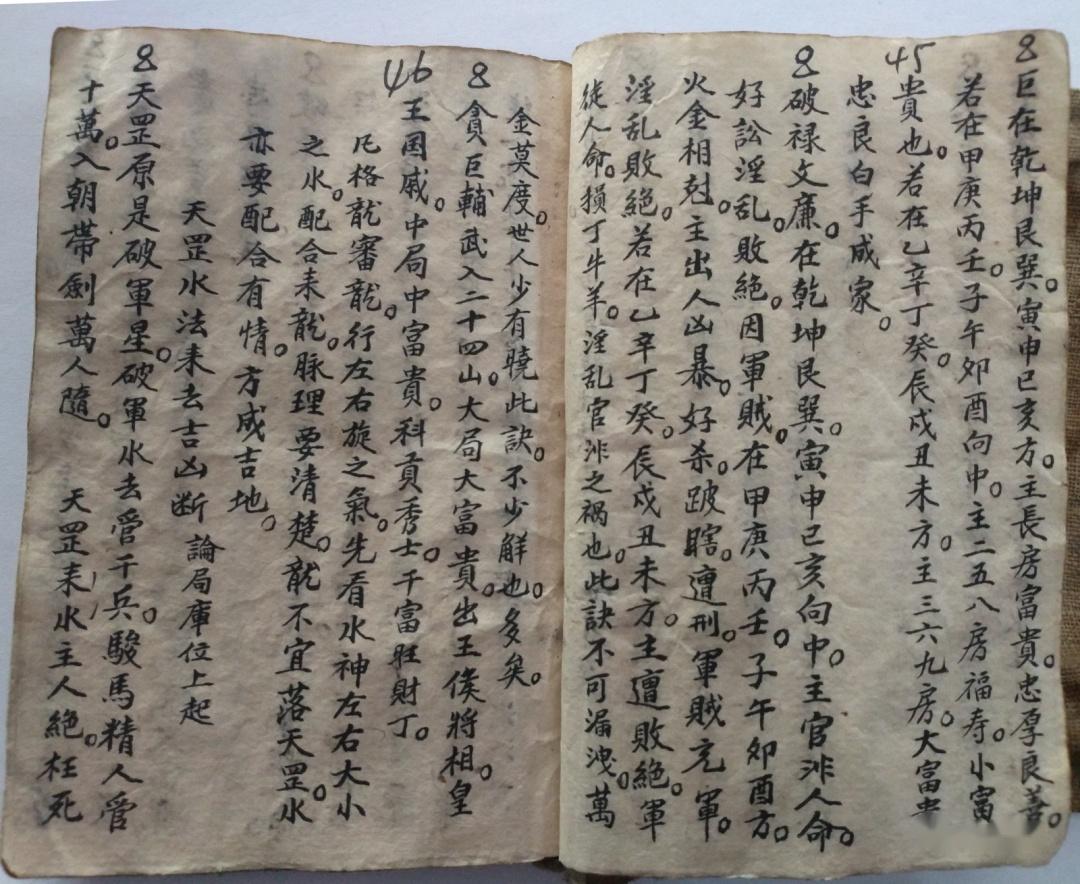 8巨在乾坤艮巽。寅申巳亥方。主長房富貴。忠厚良善。
若在甲庚丙壬。子午卯酉向中。主二五八房福寿。小富
45
貴也。若在乙辛丁癸。辰戌丑未方。主三六九房。大富貴
忠良白手成家。
8破禄文廉。在乾坤艮巽。寅申巳亥向中。主官非人命。
好訟淫乱。敗絕。因軍賊。在甲庚丙壬。子午卯酉方。
火金相尅。主出人凶暴。好杀。跛瞎。遭刑。軍賊充軍。
淫乱敗絕。若在乙辛丁癸。辰戌丑未方。主遭敗絕。軍
徒人命。損丁牛羊。淫乱官非之祸也。此訣不可漏洩。萬
金莫度。世人少有曉此訣。不少解也。多矣。
8貪巨輔武入二十四山。大局大富貴。出王侯將相。皇
46
王国戚。中局中富貴。科貢秀士。干富旺財丁。
凡格龍審龍。行左右旋之氣。先看水神左右大小
之水。配合来龍。脉理要清楚。龍不宜落天罡。水
亦要配合有情。方成吉地。
天罡水法来去吉凶断 論局庫位上起
8天罡原是破軍星。破軍水去管千兵。駿馬精人管
十萬。入朝帶劍萬人隨。 天罡来水主人絕。枉死